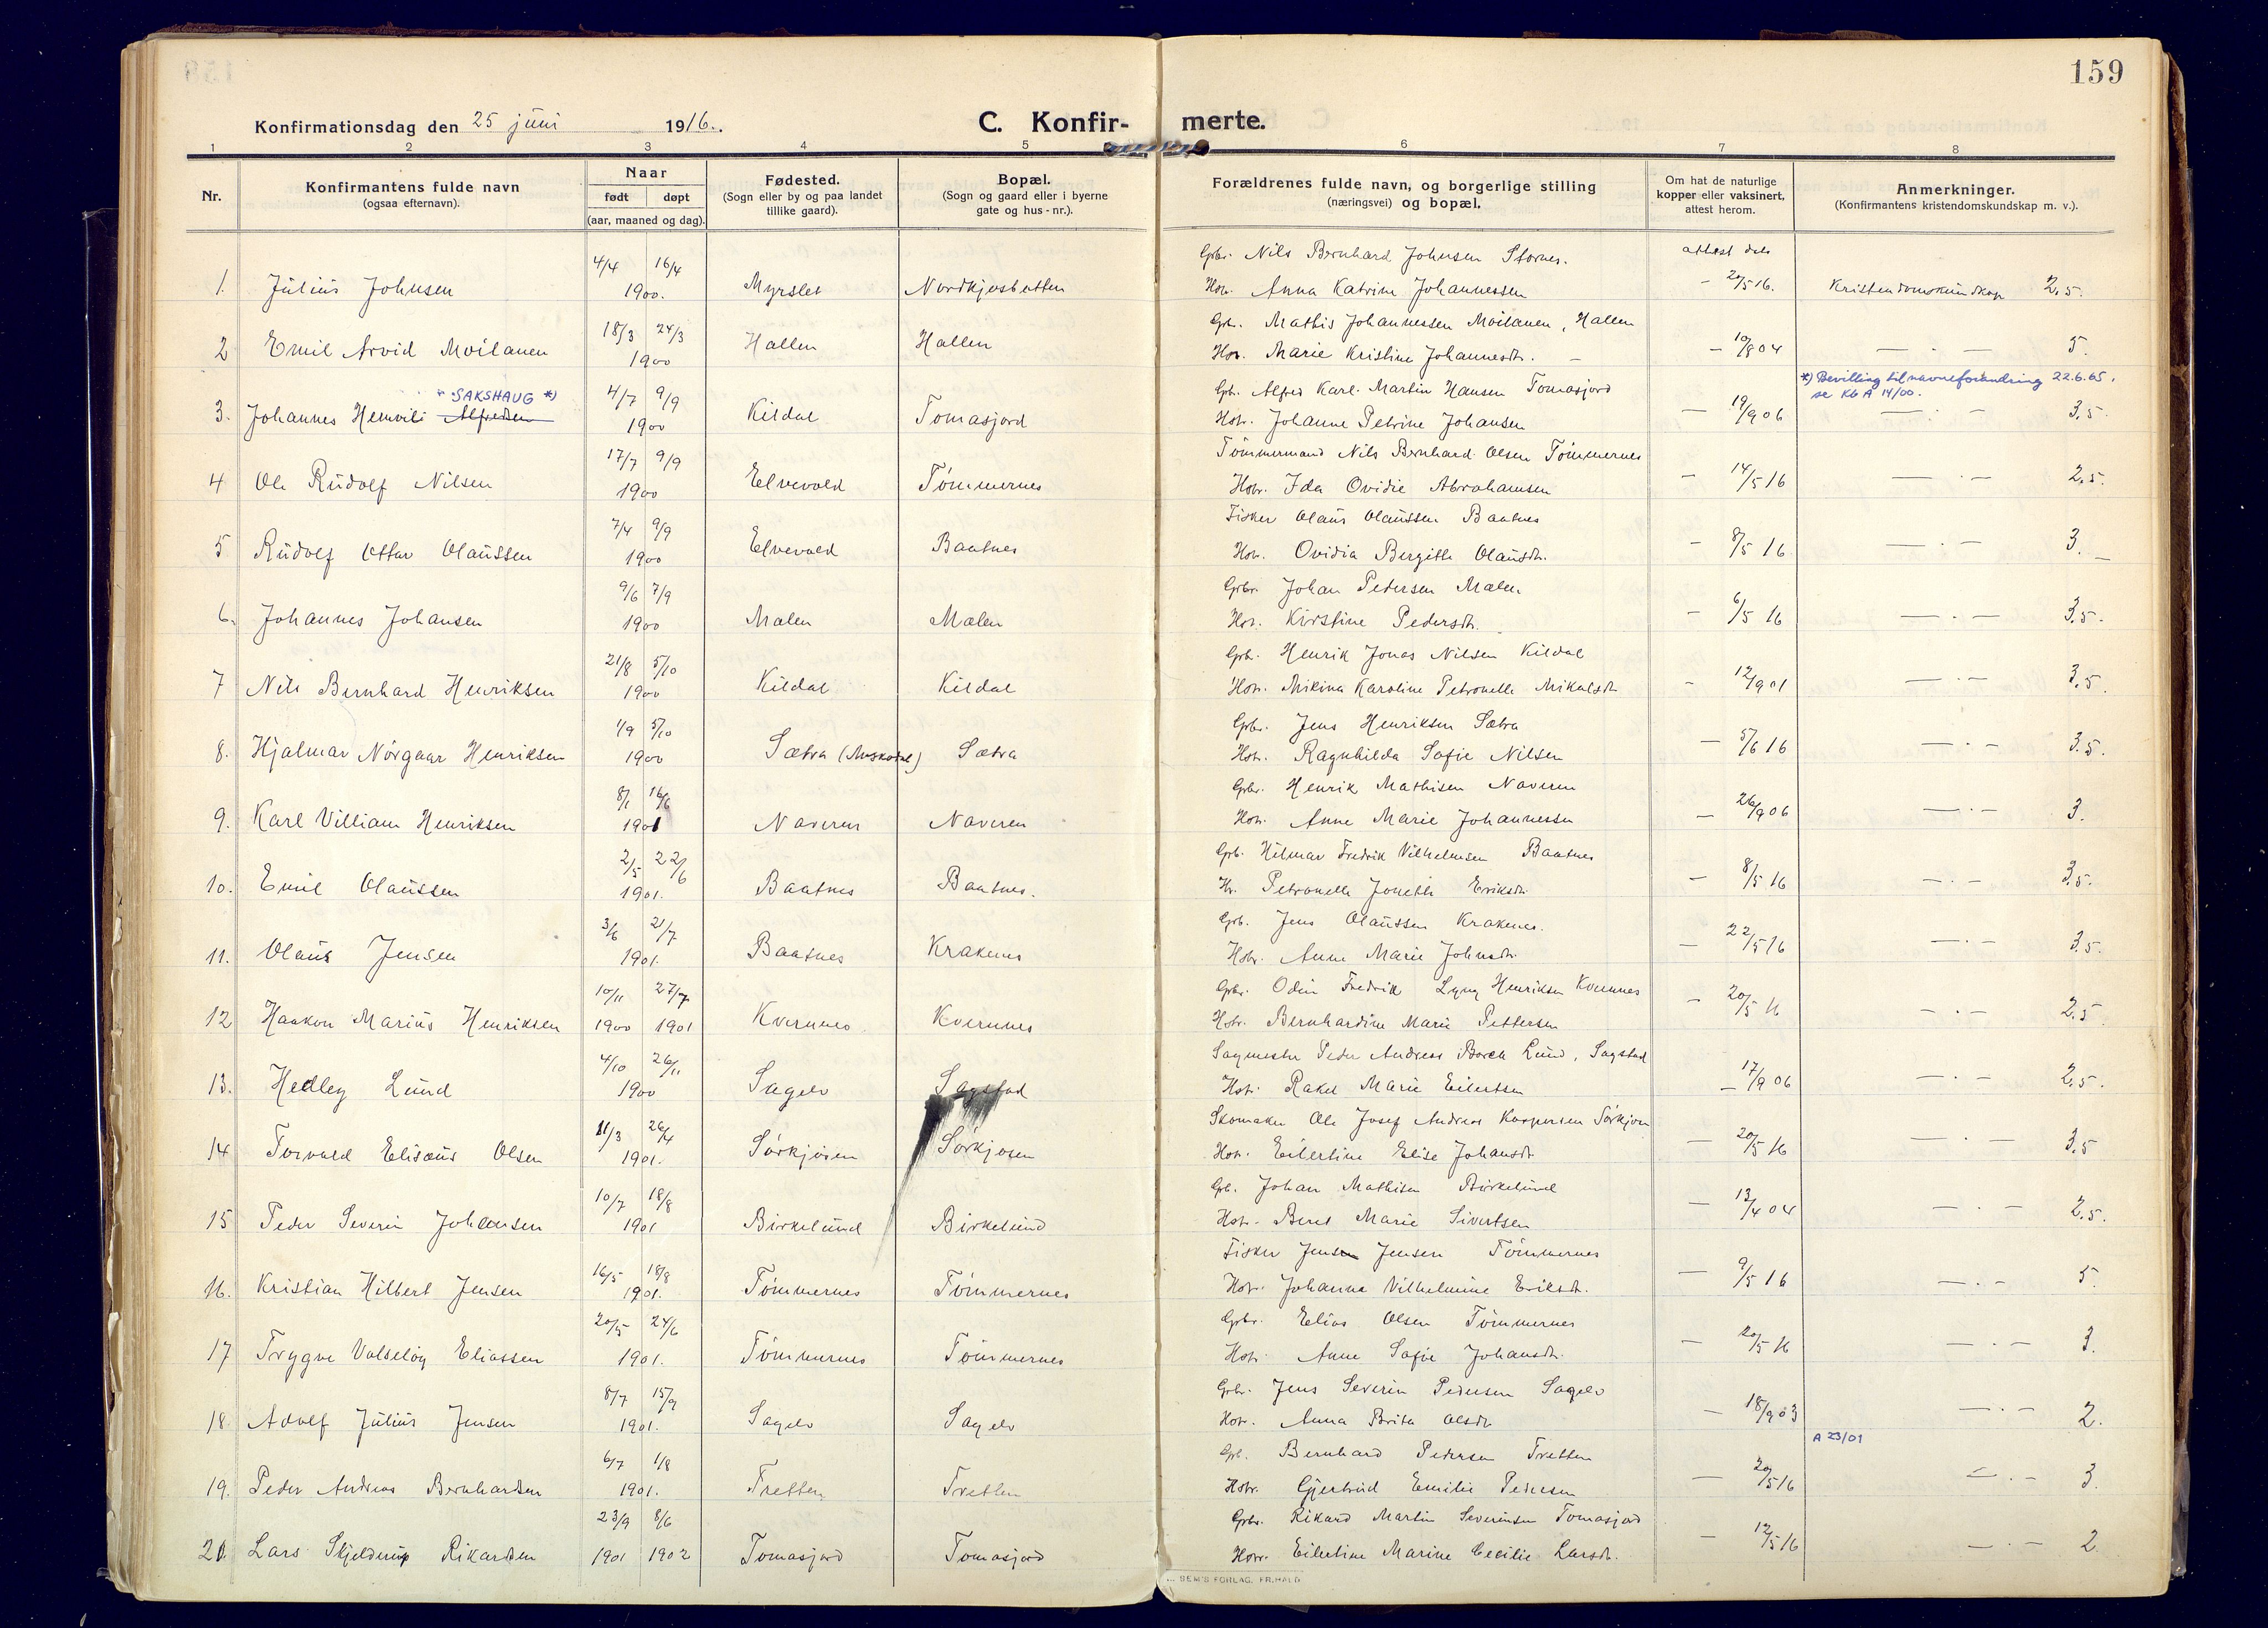 159
Konfirmationsdag den 25 juni 1916.
C. Konfir- merte.
1 2 3 4 5 6 7 8
Nr.
Konfirmantens fulde navn
(ogsaa efternavn).
Naar
født døpt
(aar, maaned og dag).
Fødested.
(Sogn eller by og paa landet
tillike gaard).
Bopæl.
(Sogn og gaard eller i byerne
gate og hus-nr.).
Forældrenes fulde navn, og borgerlige stilling
(næringsvei) og bopæl.
Om hat de naturlige
kopper eller vaksinert,
attest herom.
Anmerkninger.
(Konfirmantens kristendomskundskap m. v.).
4/4 16/4 Gbr. Nils Bernhard Johnsen Stornes. attest dat
1. Julius Johnsen 1900. Myrslet Nordkjosbotten Hstr. Anna Katrine Johannessen - 20/5 16. Kristendomskundskap 2,5.
18/3 24/3 Gbr. Mathis Johannessen Moilanen, Hallen
2 Emil Arvid Moilanen 1900 Hallen Hallen Hstr. Marie Kristine Johannesdtr. - - 10/8 04 — . — 5.
" SAKSHAUG *) 4/7 9/9 Gbr. Alfred Karl Martin Hansen Tomasjord *) Bevilling til navneforandring 22.6.65.
se Kb A 14/00.
3. Johannes Hemvili Alfredsen 1900 Kildal Tomasjord Hstr. Johanne Petrine Johansen — 19/9 06 — . — 3,5.
17/7 9/9 Tömmermand Nils Bernhard Olsen Tömmernes
4 Ole Rudolf Nilsen 1900 Elvevold Tömmernes Hstr. Ida Ovidie Abrahamsen - 14/5 16 — . — 2,5.
7/4 9/9 Fisker Olaus Olaussen Baatnes
5 Rudolf Ottar Olaussen 1900 Elvevold Baatnes Hstr. Ovidia Bergitte Olausdtr. - 8/5 16 — . — 3.
9/6 7/9 Gbr. Johan Pedersen Malen
6. Johannes Johansen 1900 Malen Malen Hstr. Kirstine Pedersdtr. - 6/5 16 — . — 3,5.
21/8 5/10 Gbr. Henrik Jonas Nilsen Kildal
7 Nils Bernhard Henriksen 1900 Kildal Kildal Hstr. Mikina Karoline Petronelle Mikalsdtr. - 12/9 01 — . — 3,5.
1/9 5/10 Gbr. Jens Henriksen Sætra
8. Hjalmar Nörgaar Henriksen 1900 Sætra (Auskardal) Sætra Hstr. Ragnhilda Sofie Nilsen — 5/6 16 — . — 3,5.
8/1 16/6 Gbr. Henrik Mathisen Naveren
9. Karl Villiam Henriksen 1901 Naveren Naveren Hstr. Anne Marie Johannessen — 26/9 06 — . — 3.
2/5 22/6 Gbr. Hilmar Fredrik Vilhelmsen Baatnes
10. Emil Olaussen 1901. Baatnes Baatnes. Hr. Petronelle Jonette Eriksdtr. — 8/5 16 — . — 3,5.
3/6 21/7 Gbr. Jens Olaussen Krakenes.
11. Olaus Jensen 1901. Baatnes Krakenes Hstr. Anne Marie Johnsdtr. — 22/5 16 — . — 3,5.
10/11 27/7 Gbr. Odin Fredrik Lyng Henriksen Kvernnes
12 Haakon Marius Henriksen 1900 1901 Kvernnes Kvernnes Hstr. Bernhardine Marie Pettersen - 20/5 16 — . — 2,5.
4/10 26/11 Sagmester Peder Andreas Borch Lund, Sagstad
13. Hedley Lund 1900 Sagelv Sagstad Hstr. Rakel Marie Eilertsen — 17/9 06 — . — 2,5.
11/3 26/4 Skomaker Ole Josef Andreas Kaspersen Sörkjosen
14 Torvald Elisæus Olsen 1901. Sörkjosen Sörkjosen Hstr. Eilertine Elise Johansdtr. — 20/5 16 — . — 3,5
10/7 18/8 Gb. Johan Mathisen Birkelund
15 Peder Severin Johansen 1901 Birkelund Birkelund Hstr. Beret Marie Sivertsen — 13/4 04 — . — 2,5.
16/5 18/8 Fisker Jens Jensen Tömmernes
16. Kristian Hilbert Jensen 1901. Tömmernes Tömmernes Hstr. Johanna Vilhelmine Eriksdtr. — 9/5 16 — . — 5.
20/5 24/6 Gbr. Elias Olsen Tömmernes
17 Trygve Valseløy Eliassen 1901. Tömmernes Tömmernes Hstr. Anne Sofie Johansdtr. — 20/5 16 — . — 3.
8/7 15/9 Gbr. Jens Severin Pedersen Sagelv
18. Adolf Julius Jensen 1901. Sagelv Sagelv Hstr. Anna Brita Olsdtr — 18/9 03 — . — 2.
6/7 1/8 Gb. Bernhard Pedersen Tretten A 23/01
19. Peder Andreas Bernhardsen 1901. Tretten Tretten Hstr. Gjertrud Emilie Pedersen — 20/5 16 — . — 3.
23/9 8/6 Gbr. Rikard Martin Severinsen Tomasjord
20. Lars Skjelderup Rikardsen 1901 1902 Tomasjord Tomasjord Hstr. Eilertine Marine Cecilie Larsdtr. — 12/5 16 — . — 2.
SEM'S FORLAG, FR.HALD